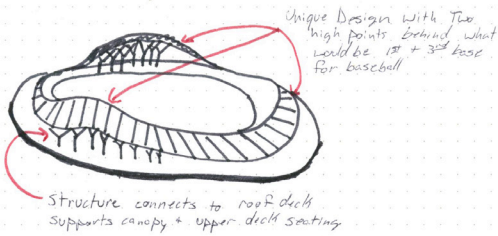 Unique Design with Two
high points behind what
would be 1st + 3rd base
for baseball
Structure connects to roof deck
supports canopy + upper deck seating